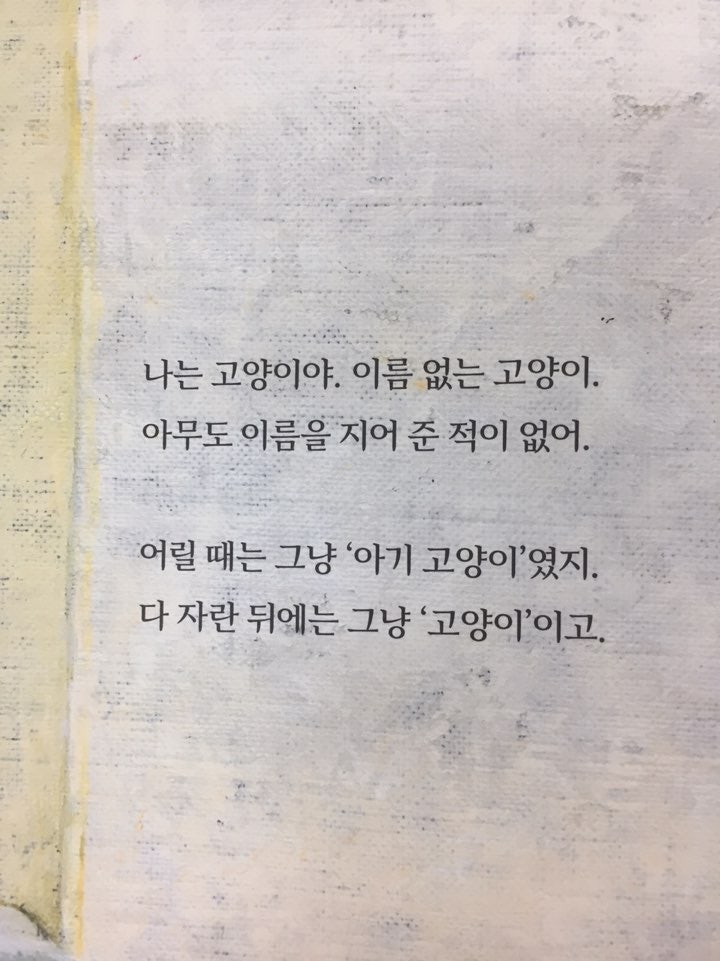 나는 고양이야. 이름 없는 고양이.
아무도 이름을 지어 준 적이 없어.
어릴 때는 그냥 ‘아기 고양이’였지.
다 자란 뒤에는 그냥 ‘고양이’이고.